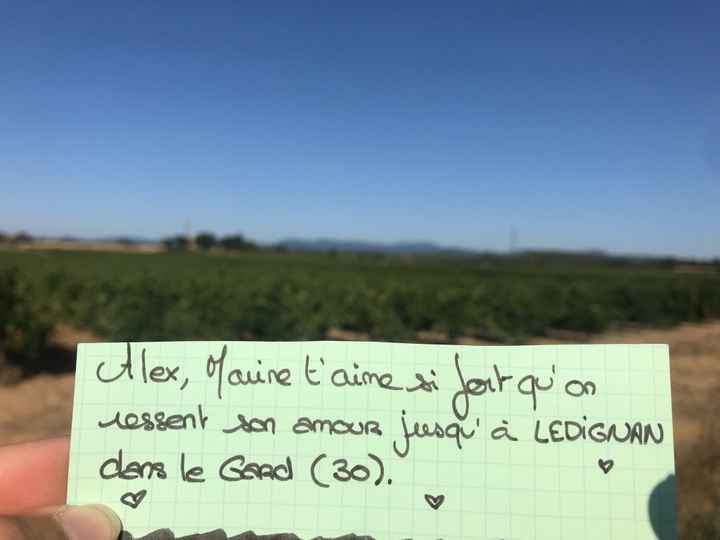 Alex, Marine t'aime si fort qu'on
ressent son amour jusqu'à LEDIGNAN
dans le Gard (30).